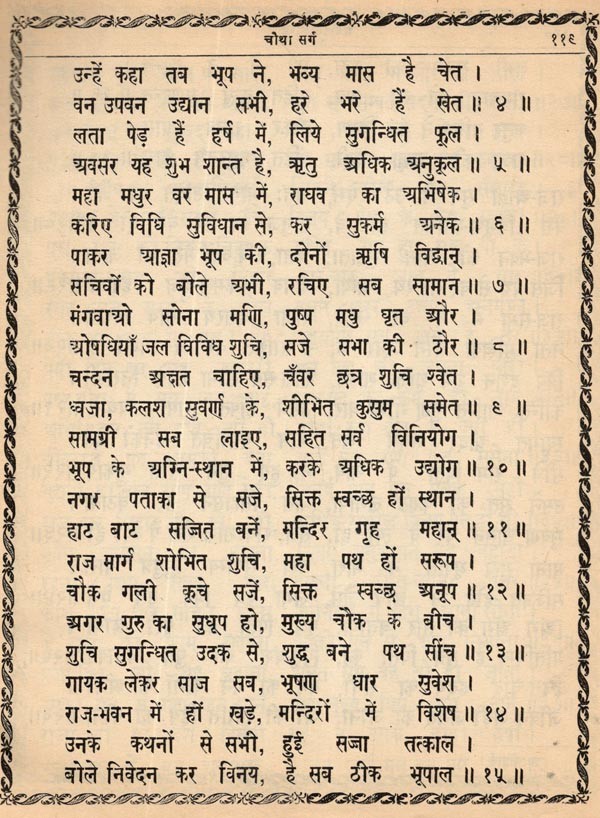 चौथा सर्ग ११९
उन्हें कहा तब भूप ने, भव्य मास है चेत ।
वन उपवन उद्यान सभी, हरे भरे हैं खेत ॥ ४ ॥
लता पेड़ हैं हर्ष में, लिये सुगन्धित फूल ।
अवसर यह शुभ शान्त है, ऋतु अधिक अनुकूल ॥ ५ ॥
महा मधुर वर मास में, राघव का अभिषेक ।
करिए विधि सुविधान से, कर सुकर्म अनेक ॥ ६ ॥
पाकर आज्ञा भूप की, दोनों ऋषि विद्वान् ।
सचिवों को बोले अभी, रचिए सब सामान ॥ ७ ॥
मंगवाओ सोना मणि, पुष्प मधु घृत और ।
ओषधियाँ जल विविध शुचि, सजे सभा की ठौर ॥ ८ ॥
चन्दन अक्षत चाहिए, चँवर छत्र शुचि श्वेत ।
ध्वजा, कलश सुवर्ण के, शोभित कुसुम समेत ॥ ९ ॥
सामग्री सब लाइए, सहित सर्व विनियोग ।
भूप के अग्नि-स्थान में, करके अधिक उद्योग ॥ १० ॥
नगर पताका से सजे, सिक्त स्वच्छ हों स्थान ।
हाट बाट सज्जित बनें, मन्दिर गृह महान् ॥ ११ ॥
राज मार्ग शोभित शुचि, महा पथ हों सरूप ।
चौक गली कूचे सजें, सिक्त स्वच्छ अनूप ॥ १२ ॥
अगर गुरु का सुधूप हो, मुख्य चौक के बीच ।
शुचि सुगन्धित उदक से, शुद्ध बने पथ सींच ॥ १३ ॥
गायक लेकर साज सब, भूषण धार सुवेश ।
राज-भवन में हों खड़े, मन्दिरों में विशेष ॥ १४ ॥
उनके कथनों से सभी, हुई सज्जा तत्काल ।
बोले निवेदन कर विनय, है सब ठीक भूपाल ॥ १५ ॥